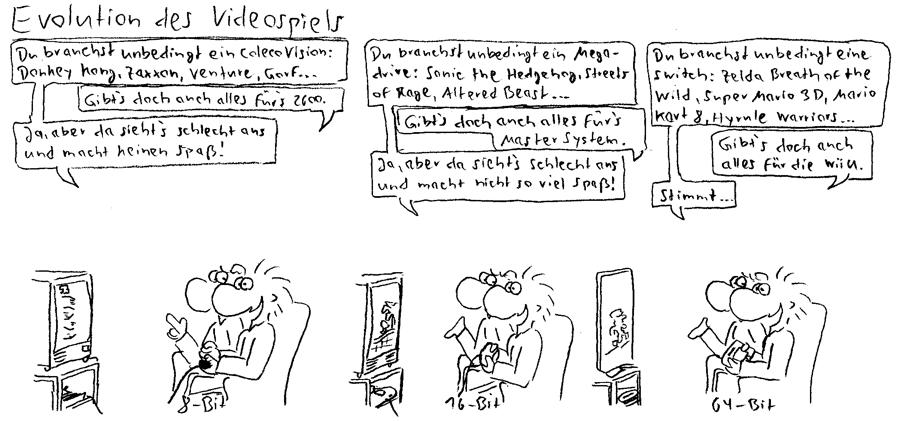 Evolution des Videospiels
Du brauchst unbedingt ein ColecoVision:
Donkey Kong, Zaxxon, Venture, Gorf...
Gibt's doch auch alles für's 2600.
Ja, aber da sieht's schlecht aus
und macht keinen Spaß!
8-Bit
Du brauchst unbedingt ein Mega-
drive: Sonic the Hedgehog, Streets
of Rage, Altered Beast...
Gibt's doch auch alles für's
Master System.
Ja, aber da sieht's schlecht aus
und macht nicht so viel Spaß!
16-Bit
Du brauchst unbedingt eine
Switch: Zelda Breath of the
Wild, Super Mario 3D, Mario
Kart 8, Hyrule Warriors...
Gibt's doch auch
alles für die Wii U.
Stimmt...
64-Bit